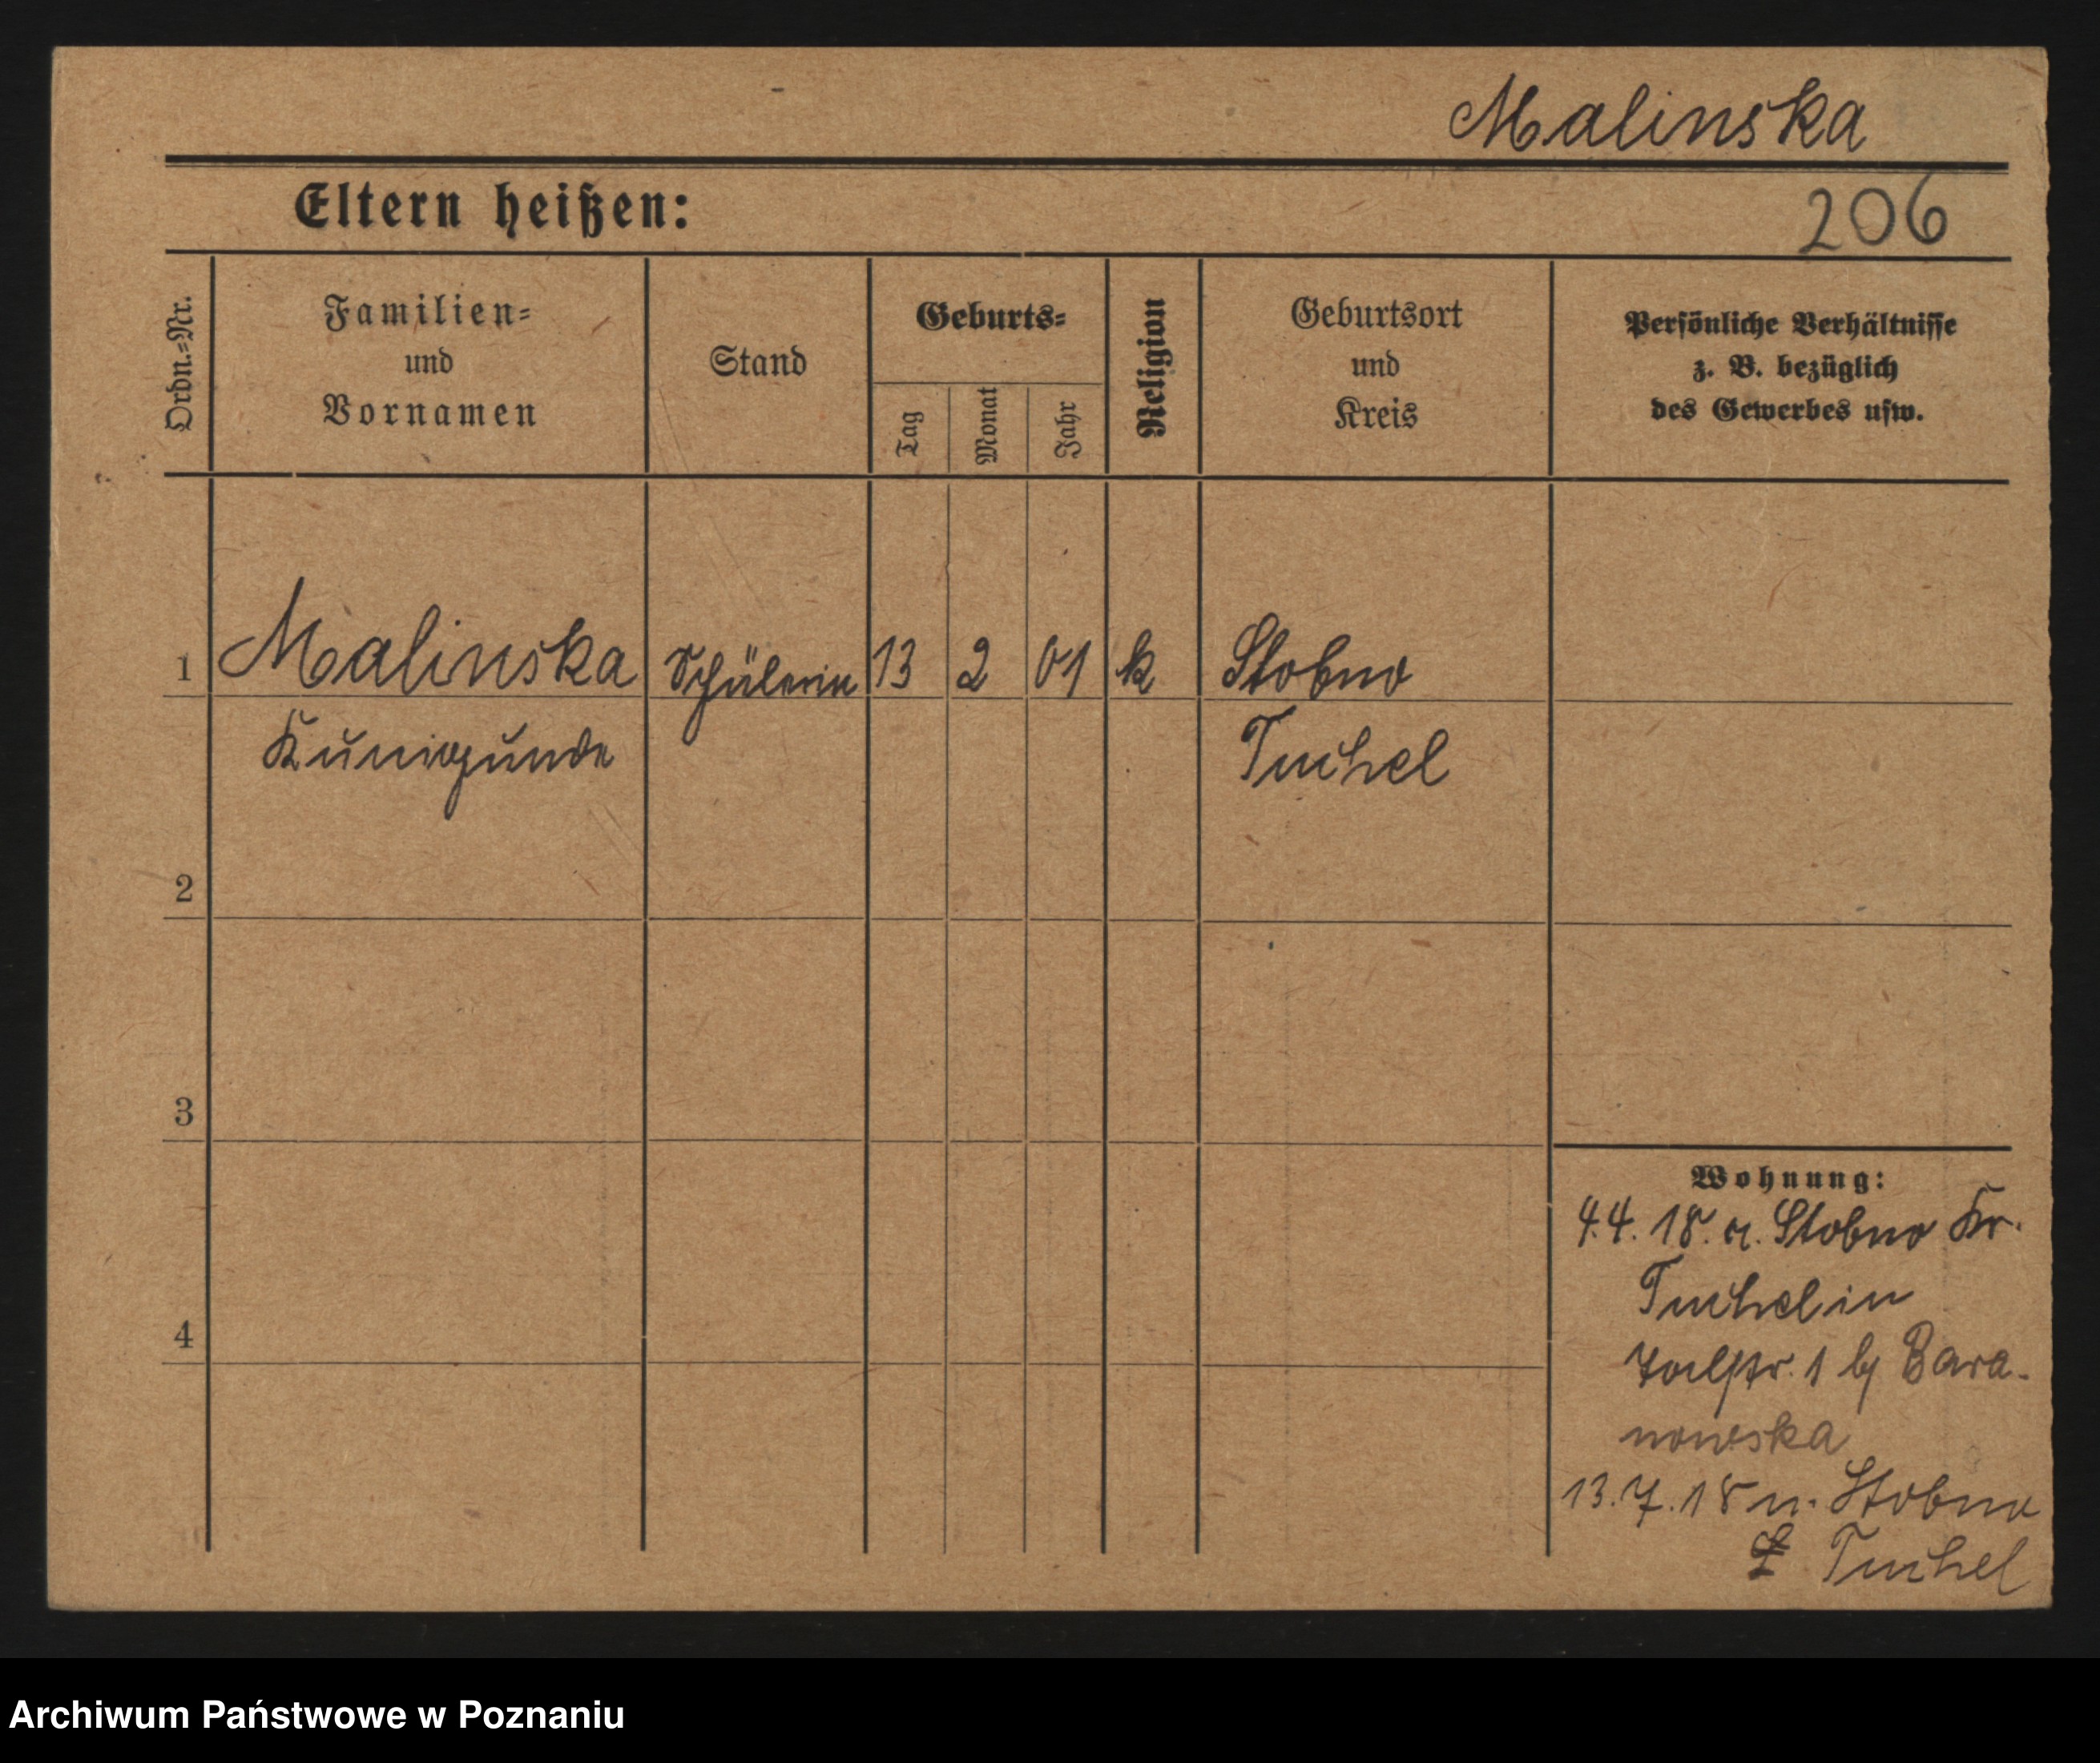 Malinska
Eltern heißen:
206
Ordn.=Nr.
Familien=
und
Vornamen
Stand
Geburts=
Tag
Monat
Jahr
Religion
Geburtsort
und
Kreis
Persönliche Verhältnisse
z. B. bezüglich
des Gewerbes usw.
1 Malinska Schülerin 13 2 01 k Stobno
Kunigunde Tuchel
2
3
4
Wohnung:
4.4.18. a. Stobno Kr.
Tuchel in
1 b/ Bara-
nowska
13.7.18 n. Stobno
Tuchel
Archiwum Państwowe w Poznaniu